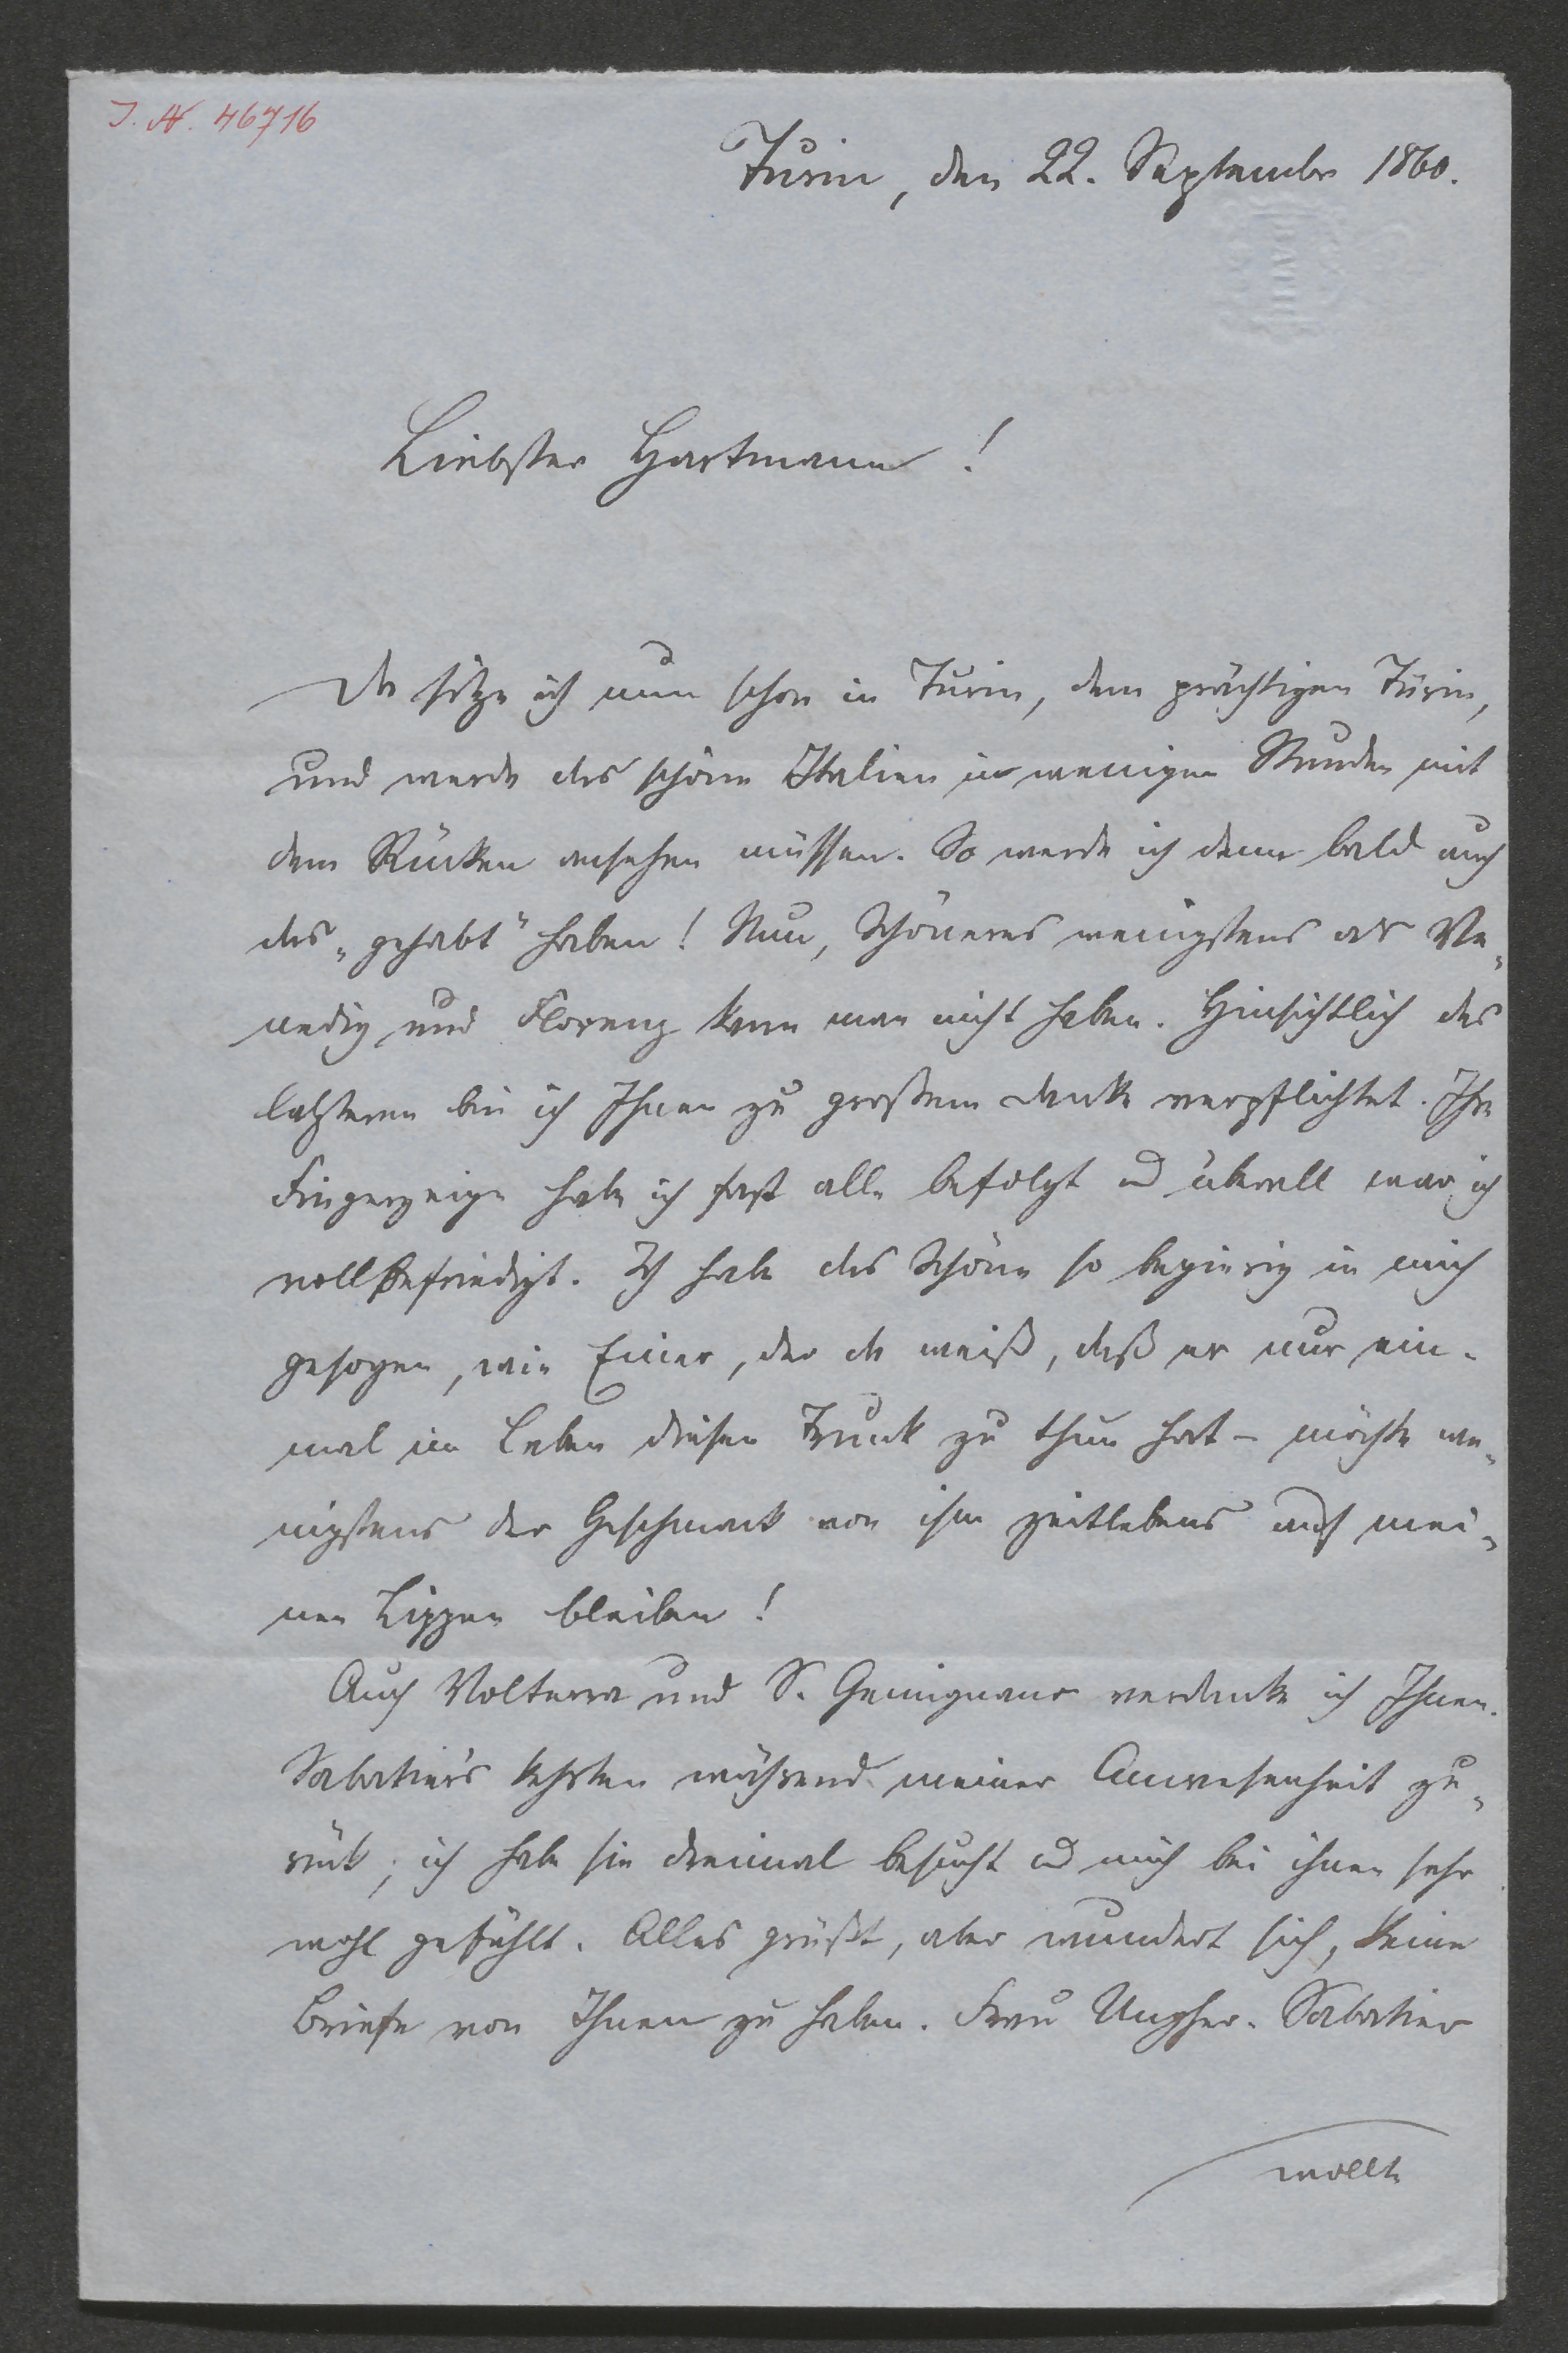 J. N. 46716
Turin, den 22. September 1860.
BATH
Liebster Hartmann!
Da sitze ich nun schon in Turin, dem prächtigen Turin,
und werde das schöne Italien in wenigen Stunden mit
dem Rücken ansehen müssen. So werde ich denn bald auch
das „gehabt" haben! Nun, Schöneres wenigstens als Ve-
nedig und Florenz kann man nicht haben. Hinsichtlich des
letzteren bin ich Ihnen zu großem Danke verpflichtet. Ihre
Fingerzeige habe ich fast alle befolgt und überall war ich
vollbefriedigt. Ich habe das Schöne so begierig in mich
gesogen, wie Einer, der da weiß, daß er nur ein-
mal im Leben diesen Trunk zu thun hat – möchte we-
nigstens der Geschmack von ihm zeitlebens auf mei-
nen Lippen bleiben!
Auch Volterra und S. Gemignano verdanke ich Ihnen.
Sabatier's kehrten während meiner Anwesenheit zu-
rück; ich habe sie dreimal besucht und mich bei ihnen sehr
wohl gefühlt. Alles grüßt, aber wundert sich, keine
Briefe von Ihnen zu haben. Frau Ungher-Sabatier
wollte